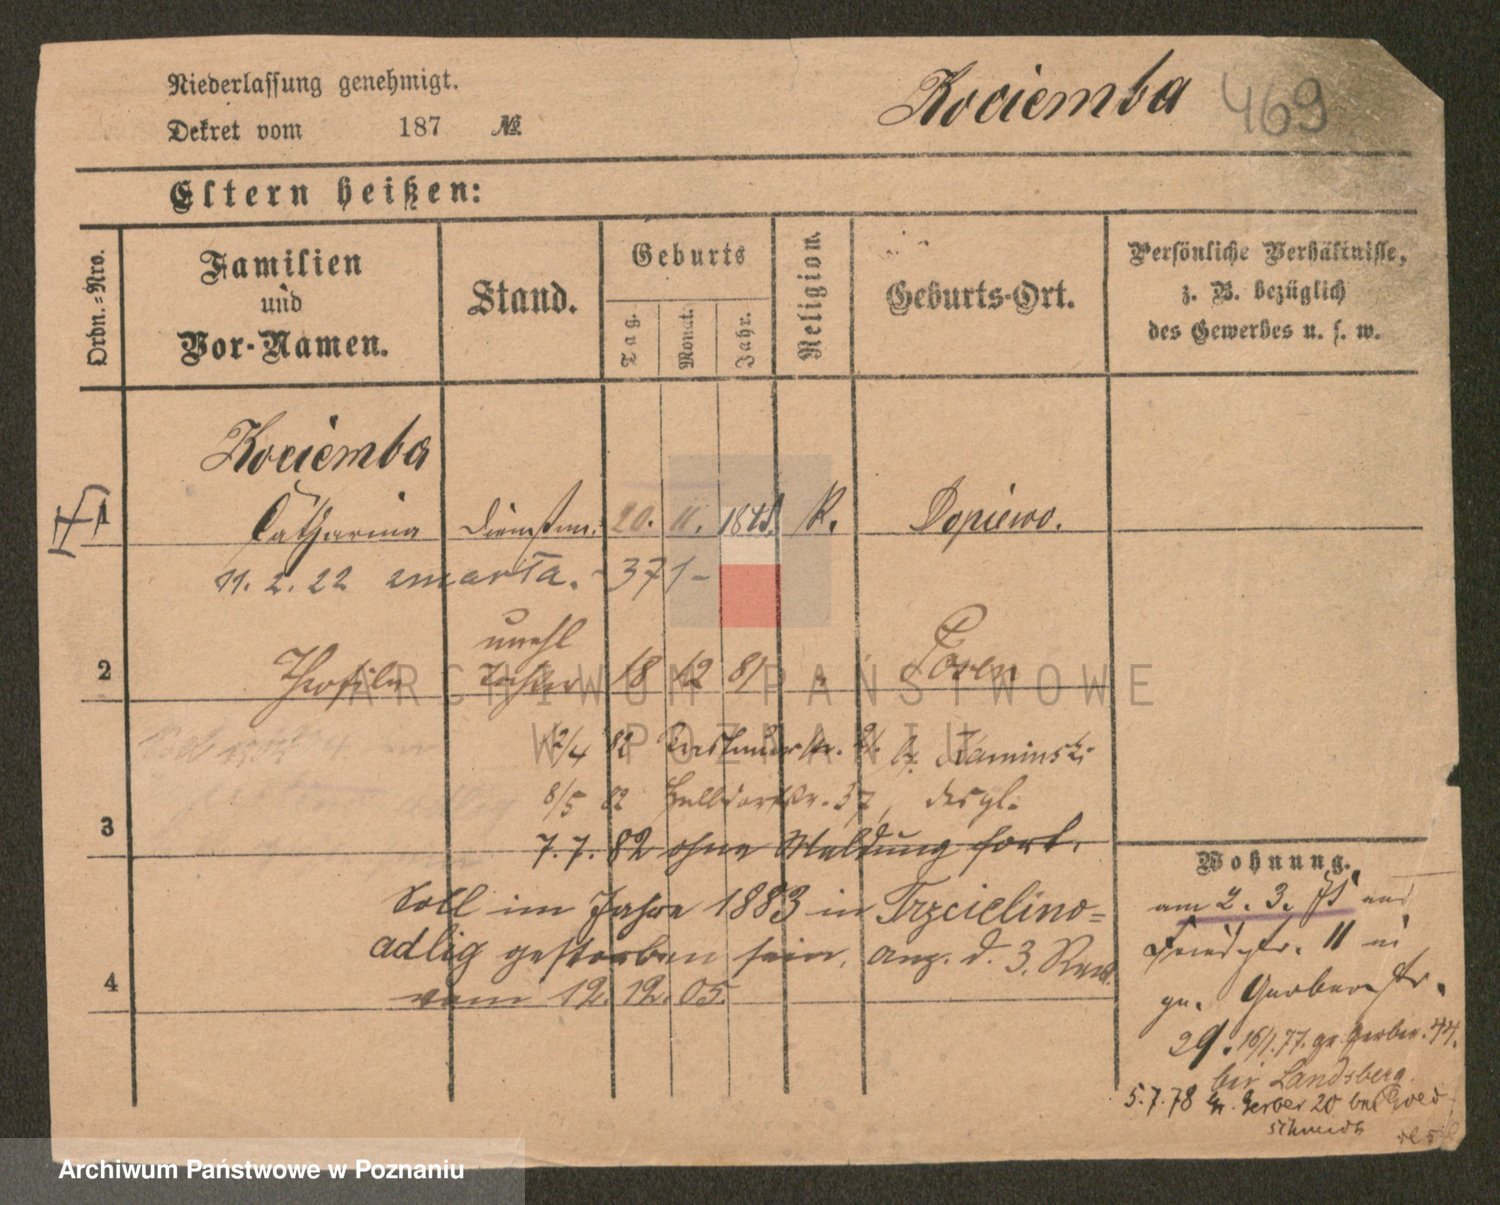 Niederlassung genehmigt.
Dekret vom 187 №
Kociemba 469
Eltern heißen:
Ordn.=Nro.
Familien
und
Vor-Namen.
Stand.
Geburts
Tag.
Monat.
Jahr.
Religion.
Geburts-Ort.
Persönliche Verhältnisse,
z. B. bezüglich
des Gewerbes u. s. w.
Kociemba
1 Catharina Dienstm. 20. 11. R. Dopiewo.
11. 2. 22 zmarła. - 371 -
unehl
2 Theofila Tochter 18 12 81 Posen
ARCHIWUM PAŃSTWOWE
W POZNANIU
2/4 82 b. Kaminski
8/5 82 37, desgl.
3
7. 7. 82 ohne Meldung fort.
Wohnung.
Soll im Jahre 1883 in Trzcielino=
adlig gestorben sein, anz. d. 3. Rev.
vom 12. 12. 05.
4
am 2. 3. 71 aus
11 in
gr. Gerberstr.
29. 16/1. 77. gr. Gerber. 44.
bei Landsberg.
5. 7. 78 Gr. Gerber 20 bei Gold
schmidt
Archiwum Państwowe w Poznaniu